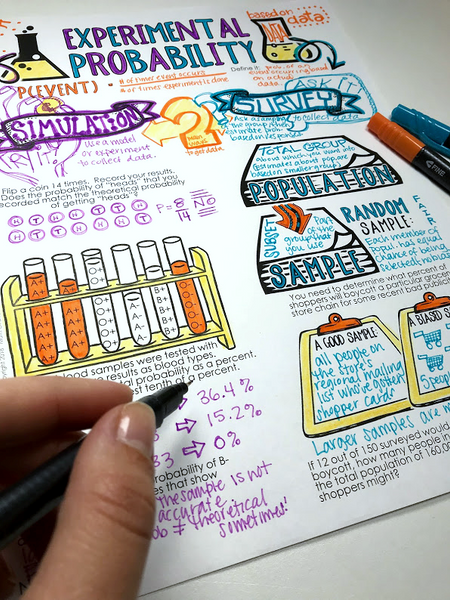 EXPERIMENTAL
PROBABILITY
based on
data
Define it: prob. of an
event occurring based
on actual
data
P(EVENT) = # of times event occurs
# of times experiment is done
SIMULATION
TRY IT!
Use a model
or experiment
to collect data.
main
ways
to get data
SURVEY
ASK IT!
to collect data
Flip a coin 14 times. Record your results.
Does this probability of "heads" that you
recorded match the theoretical probability
of getting "heads"?
P = 8/14 NO
TOTAL GROUP
about which you want info
POPULATION
SUBSET
Part
of the
group that
you use
SAMPLE
RANDOM
SAMPLE:
FAIR
Each member of
popul. has equal
chance of being
selected
You need to determine what percent of
shoppers will boycott a particular grocery
store chain for some recent bad publici
A GOOD SAMPLE:
all people on
the store's
regional mailing
list who've gotten
shopper cards
A BIASED S
5 peop
Larger samples are m
If 12 out of 150 surveyed would
boycott, how many people in
the total population of 160,00
shoppers might?
A+ A+ A+ A+ A+
A+ A+ A+ A+
O+ O+ O+ O+ O+ O+
A- A- A-
B+ B+ B+
O+ O+ O+ O+
blood samples were tested with
results as blood types.
tal probability as a percent.
est tenth of a percent.
36.4%
15.2%
33 0%
robability of B-
es that show
the sample is not
accurate
ob ≠ theoretical
sometimes!